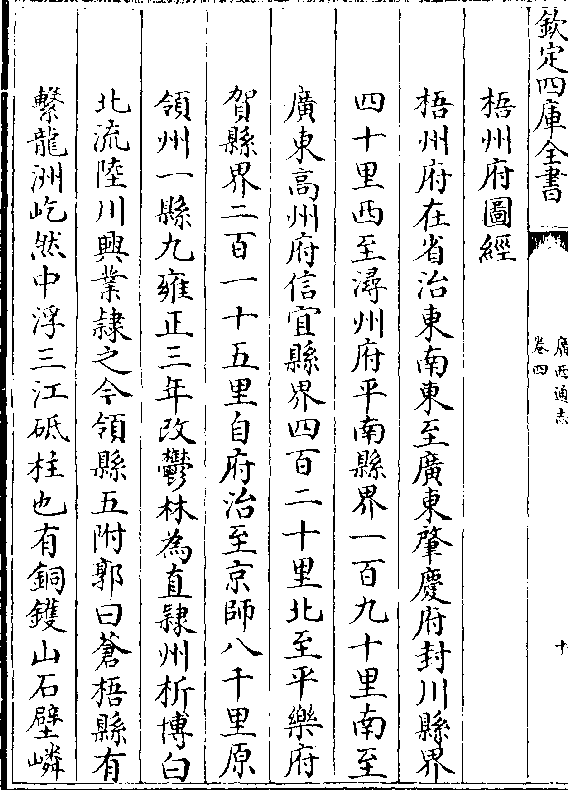 欽定四庫全書
廣西通志
卷四
十
梧州府圖經
梧州府在省治東南東至廣東肇慶府封川縣界
四十里西至潯州府平南縣界一百九十里南至
廣東高州府信宜縣界四百二十里北至平樂府
賀縣界二百一十五里自府治至京師八千里原
領州一縣九雍正三年改鬱林為直隸州析博白
北流陸川興業隸之今領縣五附郭曰蒼梧縣有
繫龍洲屹然中浮三江砥柱也有銅鑊山石壁嶙